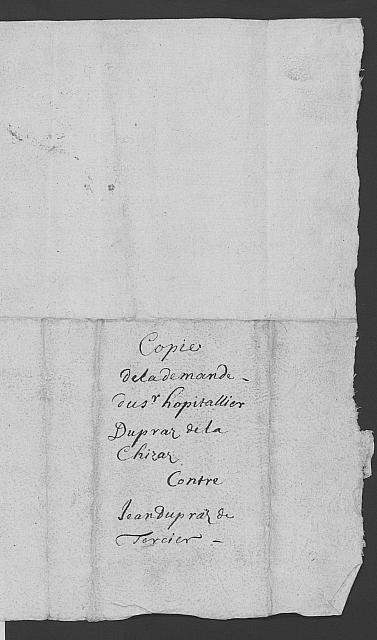 Copie
de la demande -
du sr hopitallier
Dupraz de la
Chiraz
Contre
Jean Dupraz de
Tercier -